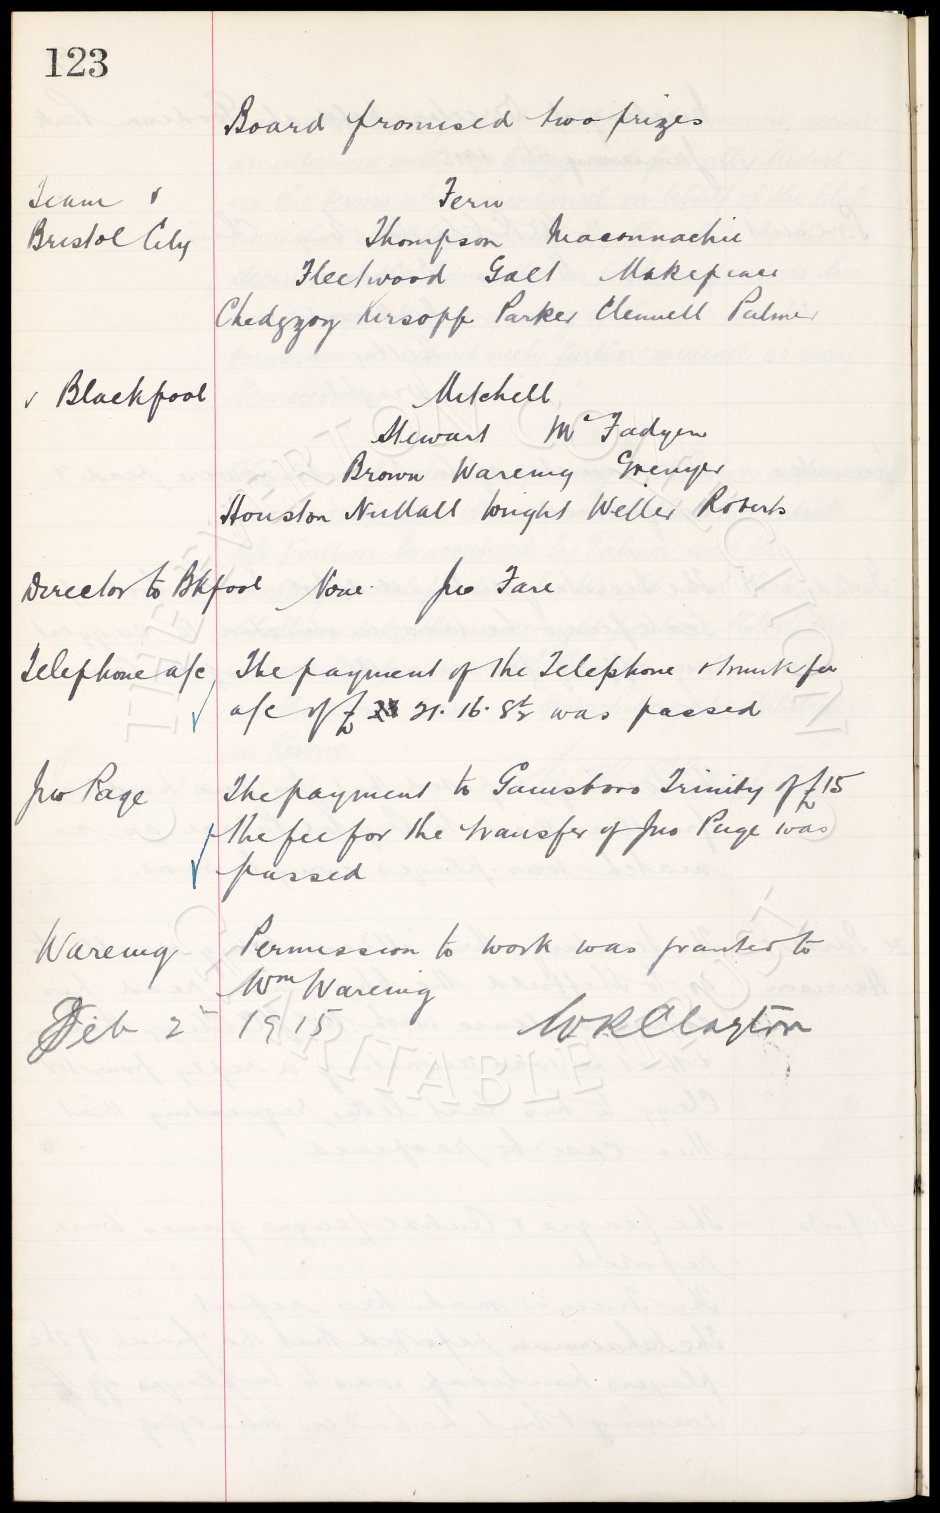 123
Board promised two prizes
Team v Fern
Bristol City Thompson Maconnachie
Fleetwood Galt Makepeace
Chedgzoy Kirsopp Parker Clennell Palmer
v Blackpool Mitchell
Stewart McFadyen
Brown Wareing Grenyer
Houston Nuttall Wright Weller Roberts
Director to Bkpool None. Jno Fare
Telephone a/c The payment of the Telephone & trunk fee
a/c of £ 21. 16. 8½ was passed
Jno Page The payment to Gainsboro Trinity of £15
the fee for the transfer of Jno Page was
passed
Wareing Permission to work was granted to
Wm Wareing
Feb 2nd 1915 W R Clayton
THE EVERTON COLLECTION
CHARITABLE TRUST